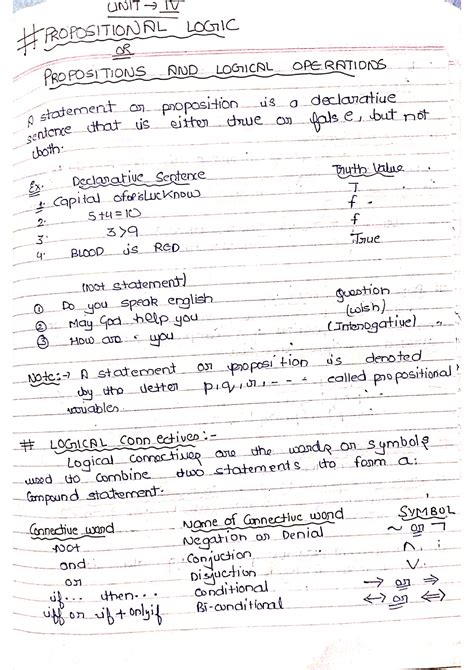 UNIT → IV
# PROPOSITIONAL LOGIC
OR
PROPOSITIONS AND LOGICAL OPERATIONS
A statement or proposition is a declarative
sentence that is either true or false, but not
both.
Ex. Declarative Sentence Truth Value
1. Capital of up is Lucknow T
2. 5+4=10 f
3. 3>9 f
4. BLOOD is RED True
(Not statement)
① Do you speak english question
② May God help you (wish)
③ How are you (Interogative)
Note:→ A statement or proposition is denoted
by the letter p, q, r, - - - called propositional
variables
# LOGICAL Connectives:-
Logical connectives are the words or symbols
used to combine two statements to form a
compound statement.
Connective word Name of Connective word SYMBOL
Not Negation or Denial ~ or ¬
and Conjuction ∧
or Disjuction ∨
if... then... Conditional → or ⇒
iff or if + only if Bi-conditional ↔ or ⇔